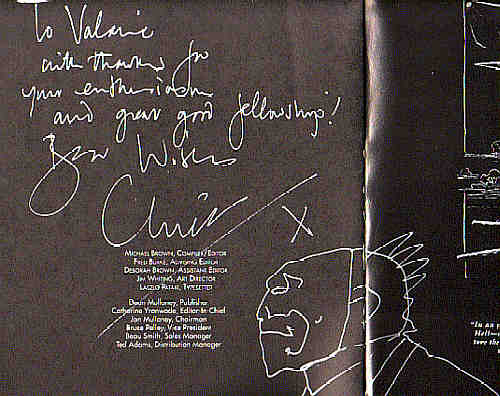 To Valarie
with thanks for
your enthusiasm
and great good fellowship!
Best Wishes
X
MICHAEL BROWN, COMPILER/EDITOR
FRED BURKE, ADVISING EDITOR
DEBORAH BROWN, ASSISTANT EDITOR
JIM WHITING, ART DIRECTOR
LASZLO PATAKI, TYPESETTER
Dean Mullaney, Publisher
Catherine Yronwode, Editor-In-Chief
Jan Mullaney, Chairman
Bruce Palley, Vice President
Beau Smith, Sales Manager
Ted Adams, Distribution Manager
"In an
Hell—
tore the